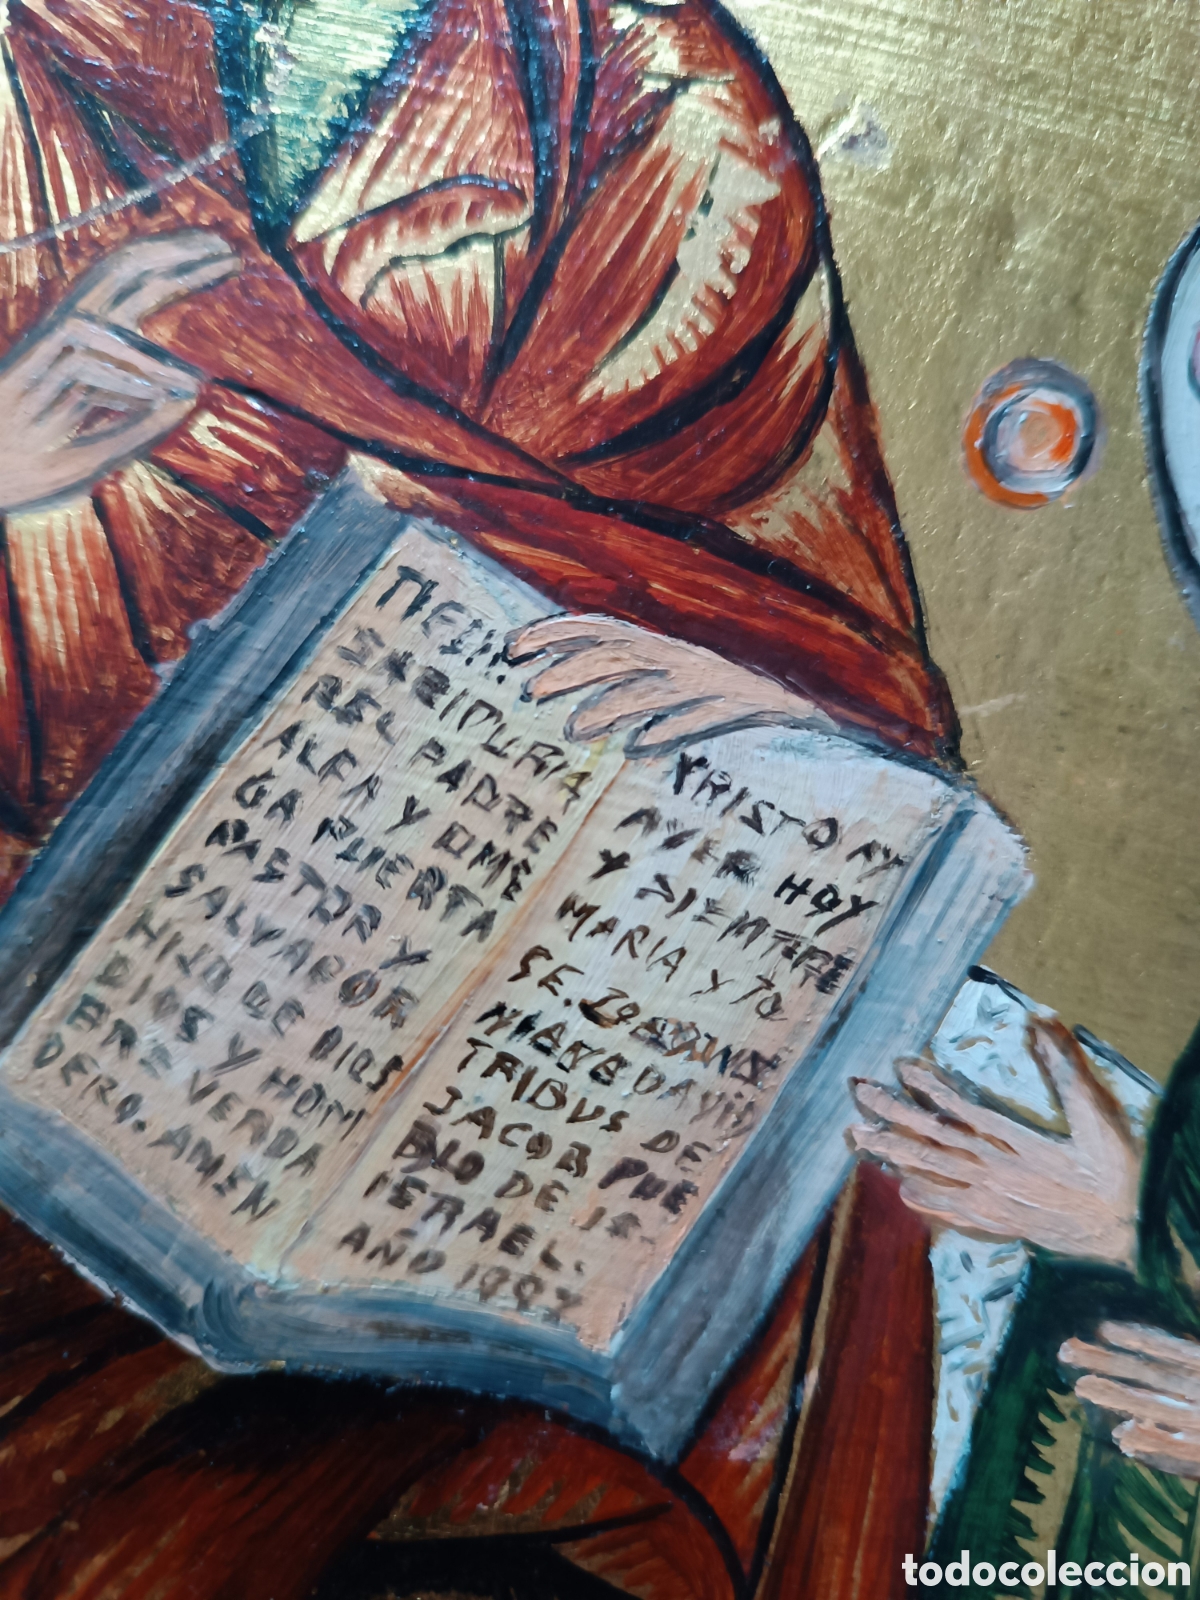 SABIDURIA
DEL PADRE
ALFA Y OME
GA PUERTA
PASTOR Y
SALVADOR
HIJO DE DIOS
DIOS Y HOM
BRE VERDA
DERO. AMEN
AYER HOY
Y SIEMPRE
MARIA Y JO
SE.
DAVID
TRIBUS DE
JACOB PUE
BLO DE IS.
IERAEL.
AÑO 1997
todocoleccion